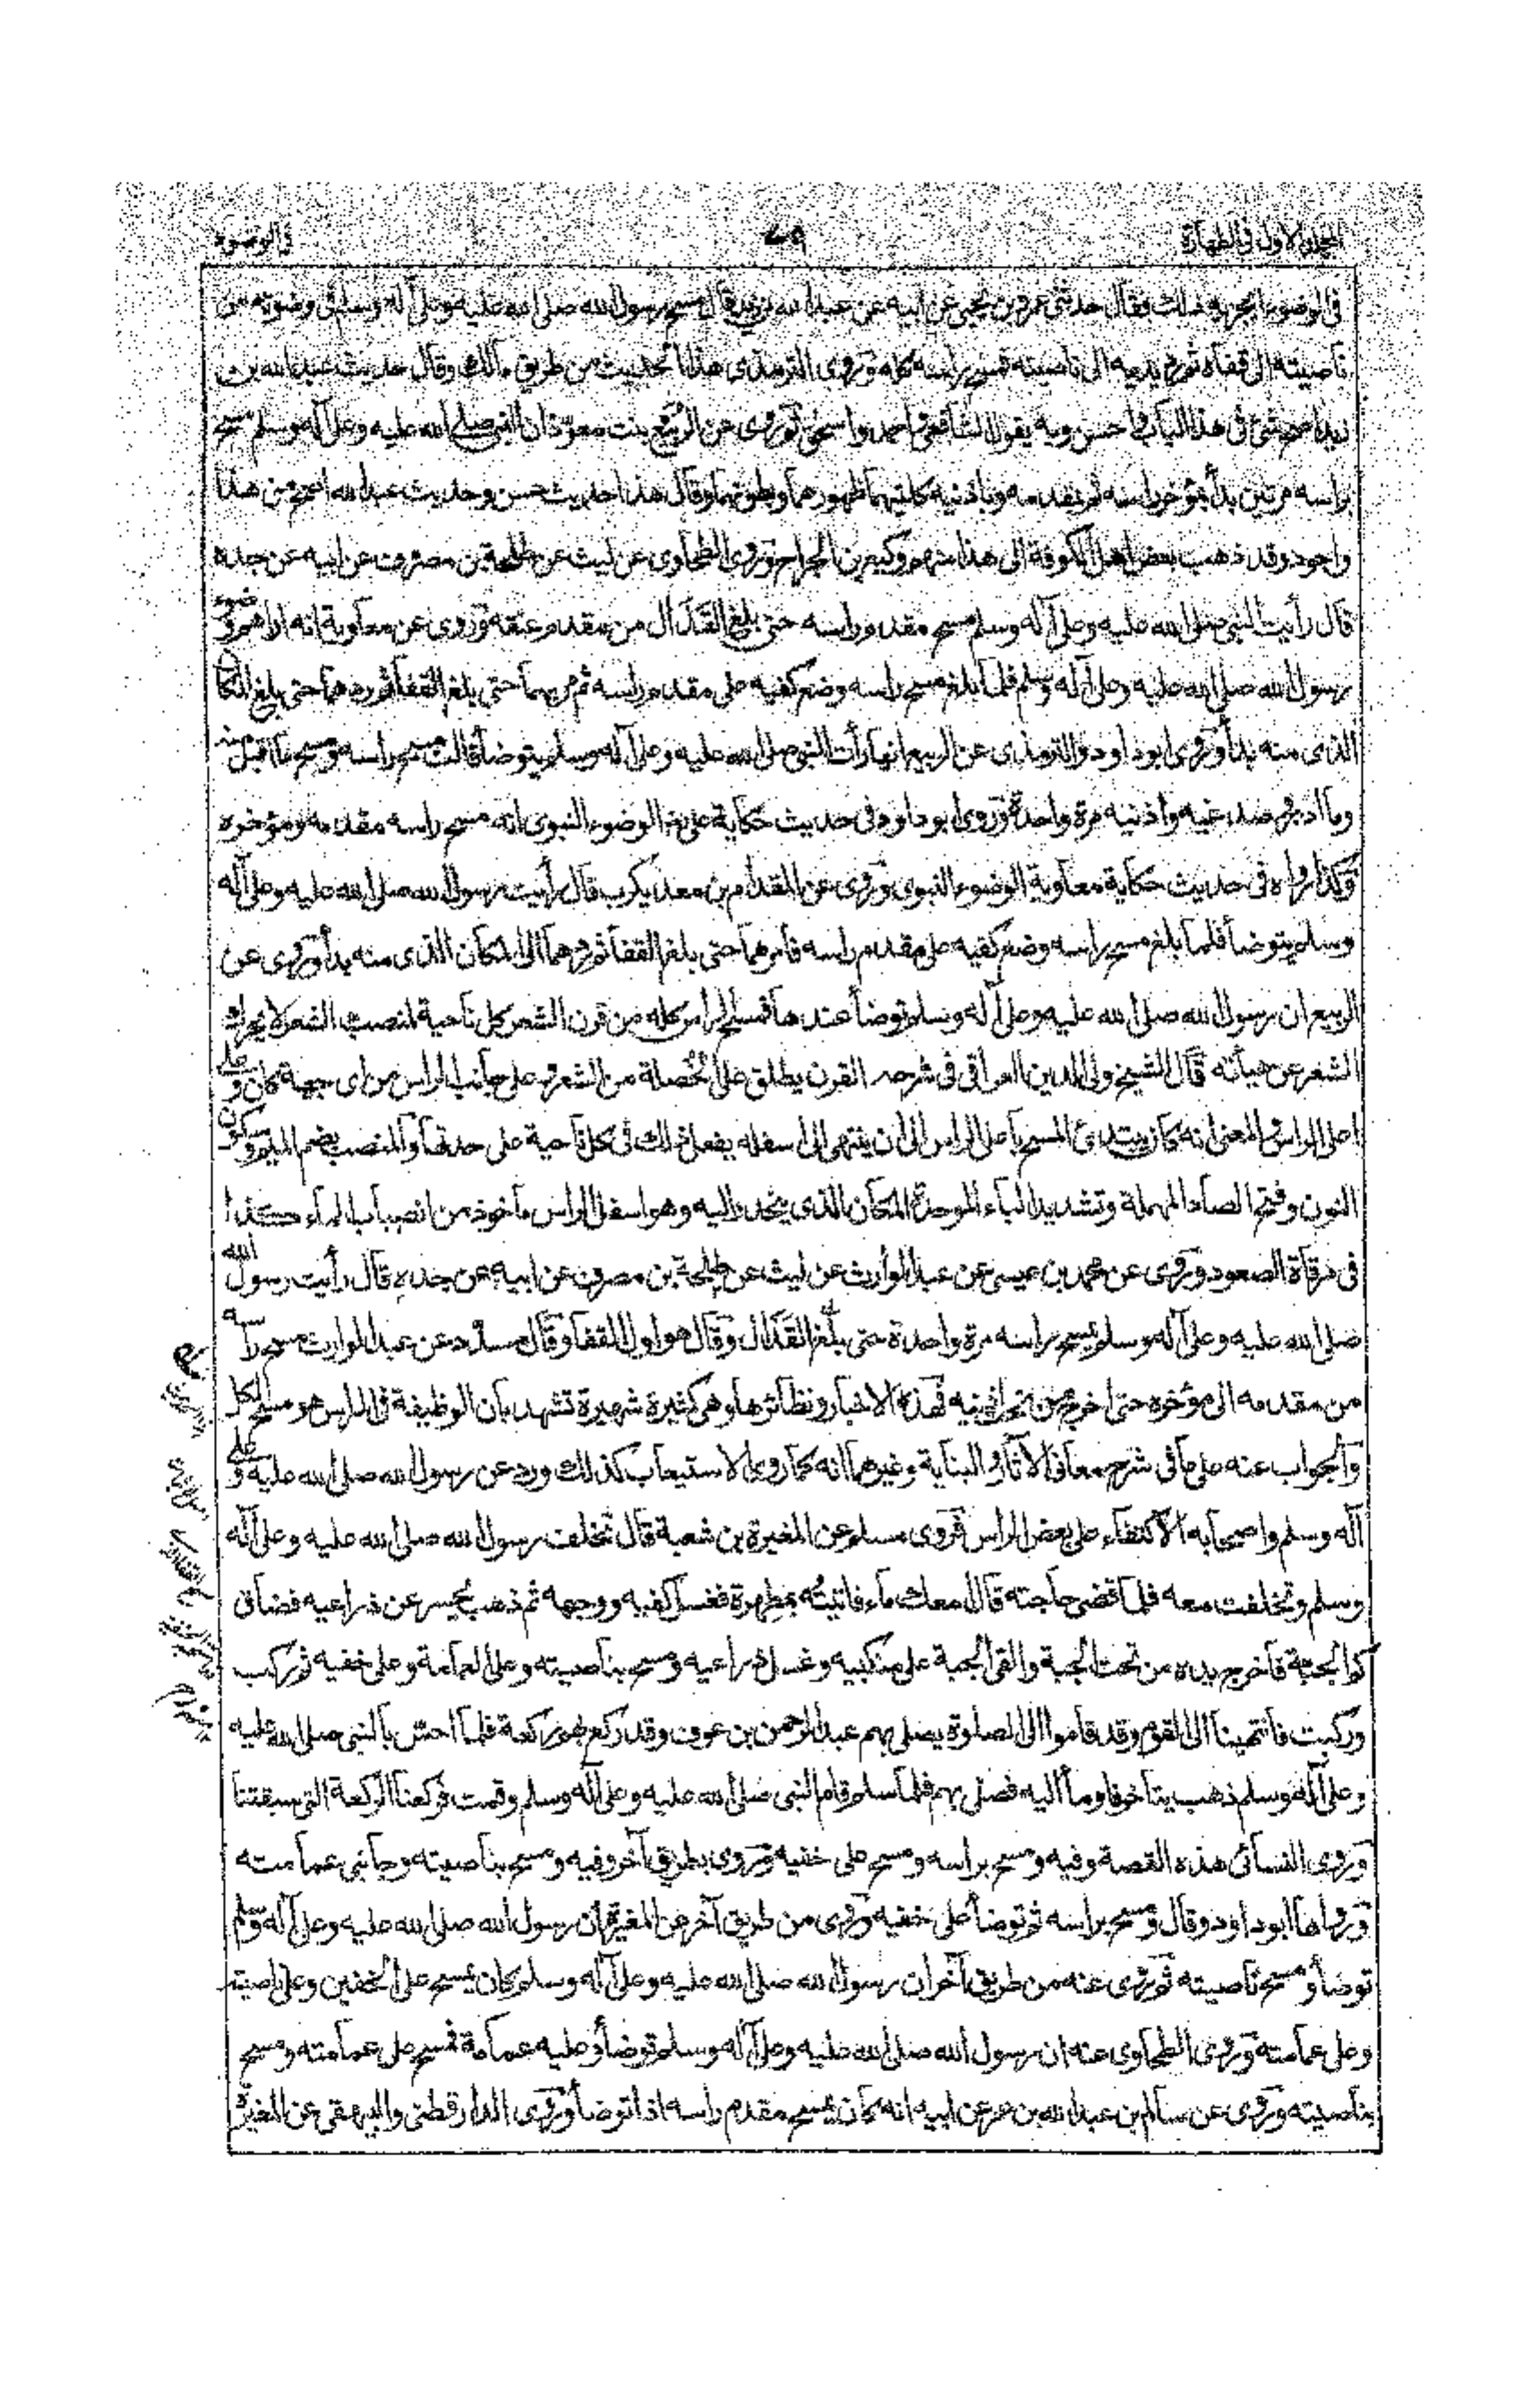 المجلد الاول فى الطهارة ٧٩ فى الوضوء
فى الوضوء بذلك فقال حدثنى عمرو بن يحيى عن ابيه عن عبد الله بن زيد قال مسح رسول الله صلى الله عليه وعلى آله وسلم فى وضوئه من
ناصيته الى قفاه ثم رد يديه الى ناصيته فمسح راسه كله وروى الترمذى هذا الحديث من طريق مالك وقال حديث عبد الله بن
زيد اصح شئ فى هذا الباب واحسن وبه يقول الشافعى واحمد واسحق وروى عن الربيع بنت معوذ ان النبى صلى الله عليه وعلى آله وسلم مسح
براسه مرتين بدأ بمؤخر راسه ثم بمقدمه وباذنيه كلتيهما ظهورهما وبطونهما وقال هذا حديث حسن وحديث عبد الله اصح من هذا
واجود وقد ذهب بعض اهل الكوفة الى هذا منهم وكيع بن الجراح وروى الطحاوى عن ليث عن طلحة بن مصرف عن ابيه عن جده
قال رأيت النبى صلى الله عليه وعلى آله وسلم مسح مقدم راسه حتى بلغ القذال من مقدم عنقه وروى عن معاوية انه اراهم وضوء
رسول الله صلى الله عليه وعلى آله وسلم فلما بلغ مسح راسه وضع كفيه على مقدم راسه ثم مر بهما حتى بلغ القفا ثم ردهما حتى بلغ المكان
الذى منه بدأ وروى ابو داود والترمذى عن الربيع انها رأت النبى صلى الله عليه وعلى آله وسلم يتوضأ قالت مسح راسه ومسح ما اقبل منه
وما ادبر وصدغيه واذنيه مرة واحدة وروى ابو داود فى حديث حكاية على الوضوء النبوى انه مسح راسه مقدمه ومؤخره
وكذا رواه فى حديث حكاية معاوية الوضوء النبوى وروى عن المقدام بن معديكرب قال رأيت رسول الله صلى الله عليه وعلى آله
وسلم يتوضأ فلما بلغ مسح راسه وضع كفيه على مقدم راسه فامرهما حتى بلغ القفا ثم ردهما الى المكان الذى منه بدأ وروى عن
الربيع ان رسول الله صلى الله عليه وعلى آله وسلم توضأ عندها فمسح الراس كله من قرن الشعر كل ناحية لمنصب الشعر لا يحرك
الشعر عن هيأته قال الشيخ ولى الدين العراقى فى شرحه القرن يطلق على الخصلة من الشعر وعلى جانب الراس من اى جهة كان وعلى
اعلى الراس والمعنى انه كان يبتدئ المسح باعلى الراس الى ان ينتهى الى اسفله يفعل ذلك فى كل ناحية على حدتها والمنصب بضم الميم وسكون
النون وفتح الصاد المهملة وتشديد الباء الموحدة المكان الذى ينحدر اليه وهو اسفل الراس ماخوذ من انصباب الماء كذا
فى مرقاة الصعود وروى عن محمد بن عيسى عن عبد الوارث عن ليث عن طلحة بن مصرف عن ابيه عن جده قال رأيت رسول الله
صلى الله عليه وعلى آله وسلم يمسح براسه مرة واحدة حتى بلغ القذال وقال هو اول القفا وقال مسدد عن عبد الوارث مسح راسه
من مقدمه الى مؤخره حتى اخرج من تحت اذنيه فهذه الاخبار ونظائرها وهى كثيرة شهيرة تشهد بان الوظيفة فى الراس هو مسح الكل
والجواب عنه على ما فى شرح معانى الآثار والبناية وغيرهما انه كما روى الاستيعاب كذلك ورد عن رسول الله صلى الله عليه وعلى
آله وسلم واصحابه الاكتفاء على بعض الراس فروى مسلم عن المغيرة بن شعبة قال تخلف رسول الله صلى الله عليه وعلى آله
وسلم وتخلفت معه فلما قضى حاجته قال معك ماء فاتيته بمطهرة فغسل كفيه ووجهه ثم ذهب يحسر عن ذراعيه فضاق
كم الجبة فاخرج يده من تحت الجبة والقى الجبة على منكبيه وغسل ذراعيه ومسح بناصيته وعلى العمامة وعلى خفيه ثم ركب
وركبت فانتهينا الى القوم وقد قاموا الى الصلوة يصلى بهم عبد الرحمن بن عوف وقد ركع بهم ركعة فلما احس بالنبى صلى الله عليه
وعلى آله وسلم ذهب يتاخر فاومأ اليه فصلى بهم فلما سلم قام النبى صلى الله عليه وعلى آله وسلم وقمت فركعنا الركعة التى سبقتنا
وروى النسائى هذه القصة وفيه ومسح براسه ومسح على خفيه وروى بطريق آخر وفيه ومسح بناصيته وجانبى عمامته
ورواها ابو داود وقال ومسح براسه ثم توضأ على خفيه وروى من طريق آخر عن المغيرة ان رسول الله صلى الله عليه وعلى آله وسلم
توضأ ومسح ناصيته ثم روى عنه من طريق آخر ان رسول الله صلى الله عليه وعلى آله وسلم كان يمسح على الخفين وعلى ناصيته
وعلى عمامته وروى الطحاوى عنه ان رسول الله صلى الله عليه وعلى آله وسلم توضأ وعليه عمامة فمسح على عمامته ومسح
بناصيته وروى عن سالم بن عبد الله بن عمر عن ابيه انه كان يمسح مقدم راسه اذا توضأ وروى الدارقطنى والبيهقى عن المغيرة